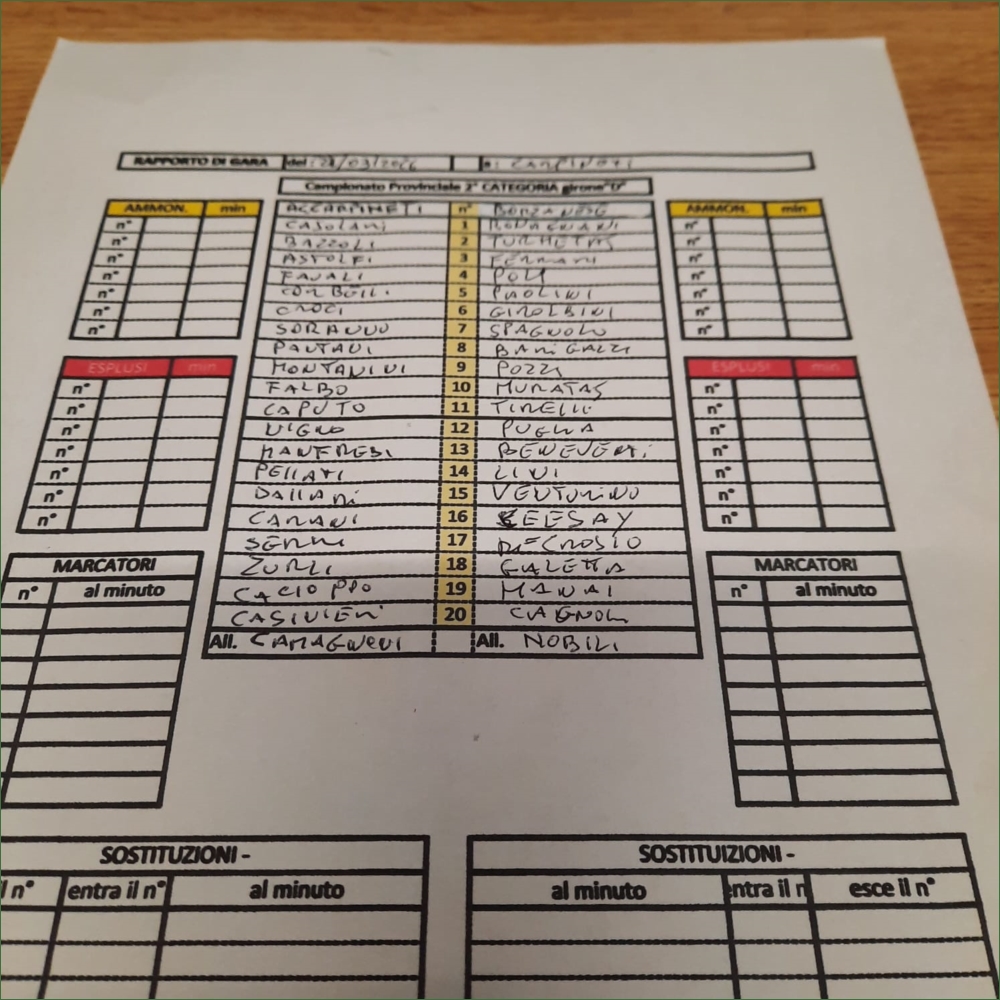 RAPPORTO DI GARA del: /03/ a: CARPINETI
Campionato Provinciale 2° CATEGORIA girone"D"
AMMON. min
n°
n°
n°
n°
n°
n°
n°
ESPLUSI min
n°
n°
n°
n°
n°
n°
n°
MARCATORI
n° al minuto
AC CARPINETI n° BORZANESE
CASOLARI 1 ROMAGNANI
BAZZOLI 2 TURHETAS
ASTOLFI 3 FERRARI
FAVALI 4 POLI
CORBELLI 5 PAOLINI
CROCI 6 GIROLDINI
SORANNO 7 SPAGNOLO
PANTANI 8 BARIGAZZI
MONTANINI 9 POZZI
FALBO 10 MURATAS
CAPUTO 11 TIRELLI
VIGNO 12 PUGLIA
MANFREDI 13 BENEVENTI
PELLATI 14 LINI
DALLARI 15 VENTURINO
CANANI 16 CEESAY
SERRI 17 DI CROSIO
ZURLI 18 GALETTA
CACIOPPO 19 MANAI
CASINIERI 20 CAGNOL
All. CAMAGNONI All. NOBILI
AMMON. min
n°
n°
n°
n°
n°
n°
n°
ESPLUSI min
n°
n°
n°
n°
n°
n°
n°
MARCATORI
n° al minuto
SOSTITUZIONI -
l n° entra il n° al minuto
SOSTITUIZIONI -
al minuto entra il n esce il n°